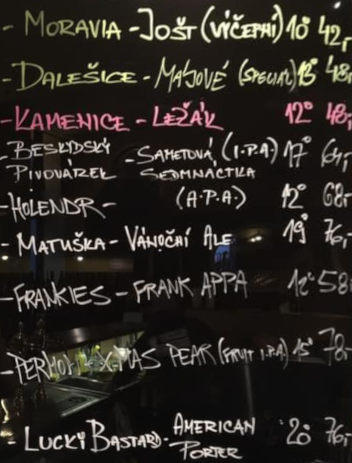 - MORAVIA - JOŠT (VÝČEPNÍ) 10° 42,-
- DALEŠICE - MÁJOVÉ (SPECIÁL) 13° 48,-
- KAMENICE - LEŽÁK 12° 48,-
- BESKIDSKÝ - SAMETOVÁ (I.P.A) 17° 64,-
PIVOVÁREK SEDMNÁCTKA
- HOLENDR - (A.P.A.) 12° 68,-
- MATUŠKA - VÁNOČNÍ ALE 19° 76,-
- FRANKIES - FRANK APPA 12° 58,-
- PERMON - X-MAS PEAR (FRUIT I.P.A) 15° 78,-
- LUCKY BASTARD - AMERICAN 20° 76,-
PORTER